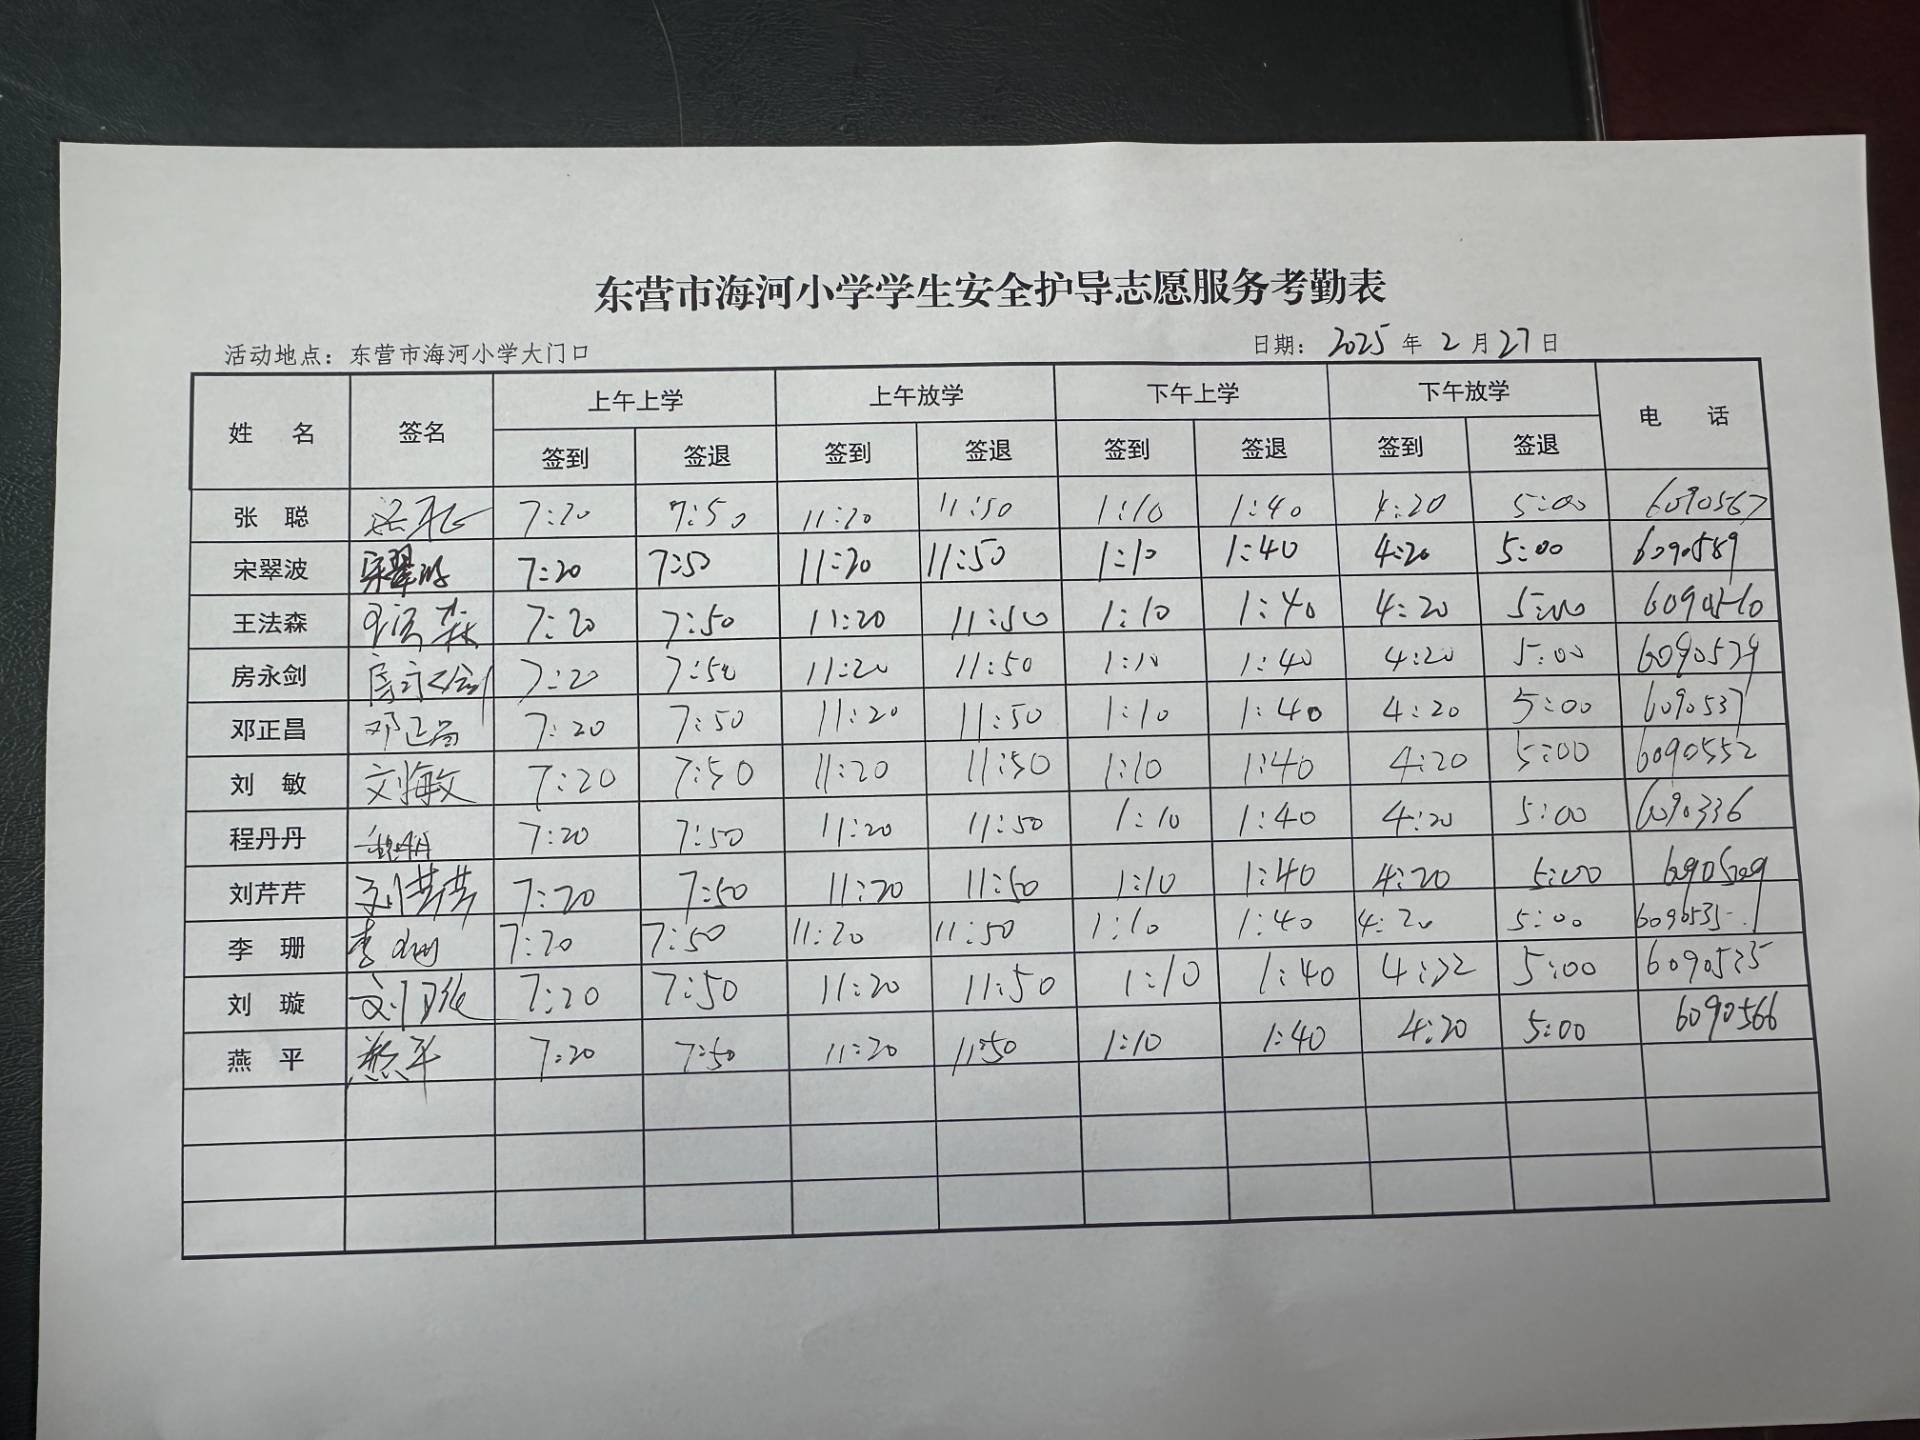 东营市海河小学学生安全护导志愿服务考勤表
活动地点：东营市海河小学大门口 日期：2025年2月27日
姓 名 签名 上午上学 上午放学 下午上学 下午放学 电 话
签到 签退 签到 签退 签到 签退 签到 签退
张 聪 7:20 7:50 11:20 11:50 1:10 1:40 4:20 5:00 6090567
宋翠波 宋翠波 7:20 7:50 11:20 11:50 1:10 1:40 4:20 5:00 6090589
王法森 王法森 7:20 7:50 11:20 11:50 1:10 1:40 4:20 5:00 6090510
房永剑 房永剑 7:20 7:50 11:20 11:50 1:10 1:40 4:20 5:00 6090579
邓正昌 邓正昌 7:20 7:50 11:20 11:50 1:10 1:40 4:20 5:00 6090537
刘 敏 刘敏 7:20 7:50 11:20 11:50 1:10 1:40 4:20 5:00 6090552
程丹丹 程丹丹 7:20 7:50 11:20 11:50 1:10 1:40 4:20 5:00 6090336
刘芹芹 刘芹芹 7:20 7:50 11:20 11:50 1:10 1:40 4:20 5:00
李 珊 李珊 7:20 7:50 11:20 11:50 1:10 1:40 4:20 5:00
刘 璇 刘璇 7:20 7:50 11:20 11:50 1:10 1:40 4:22 5:00 6090535
燕 平 燕平 7:20 7:50 11:20 11:50 1:10 1:40 4:20 5:00 6090566